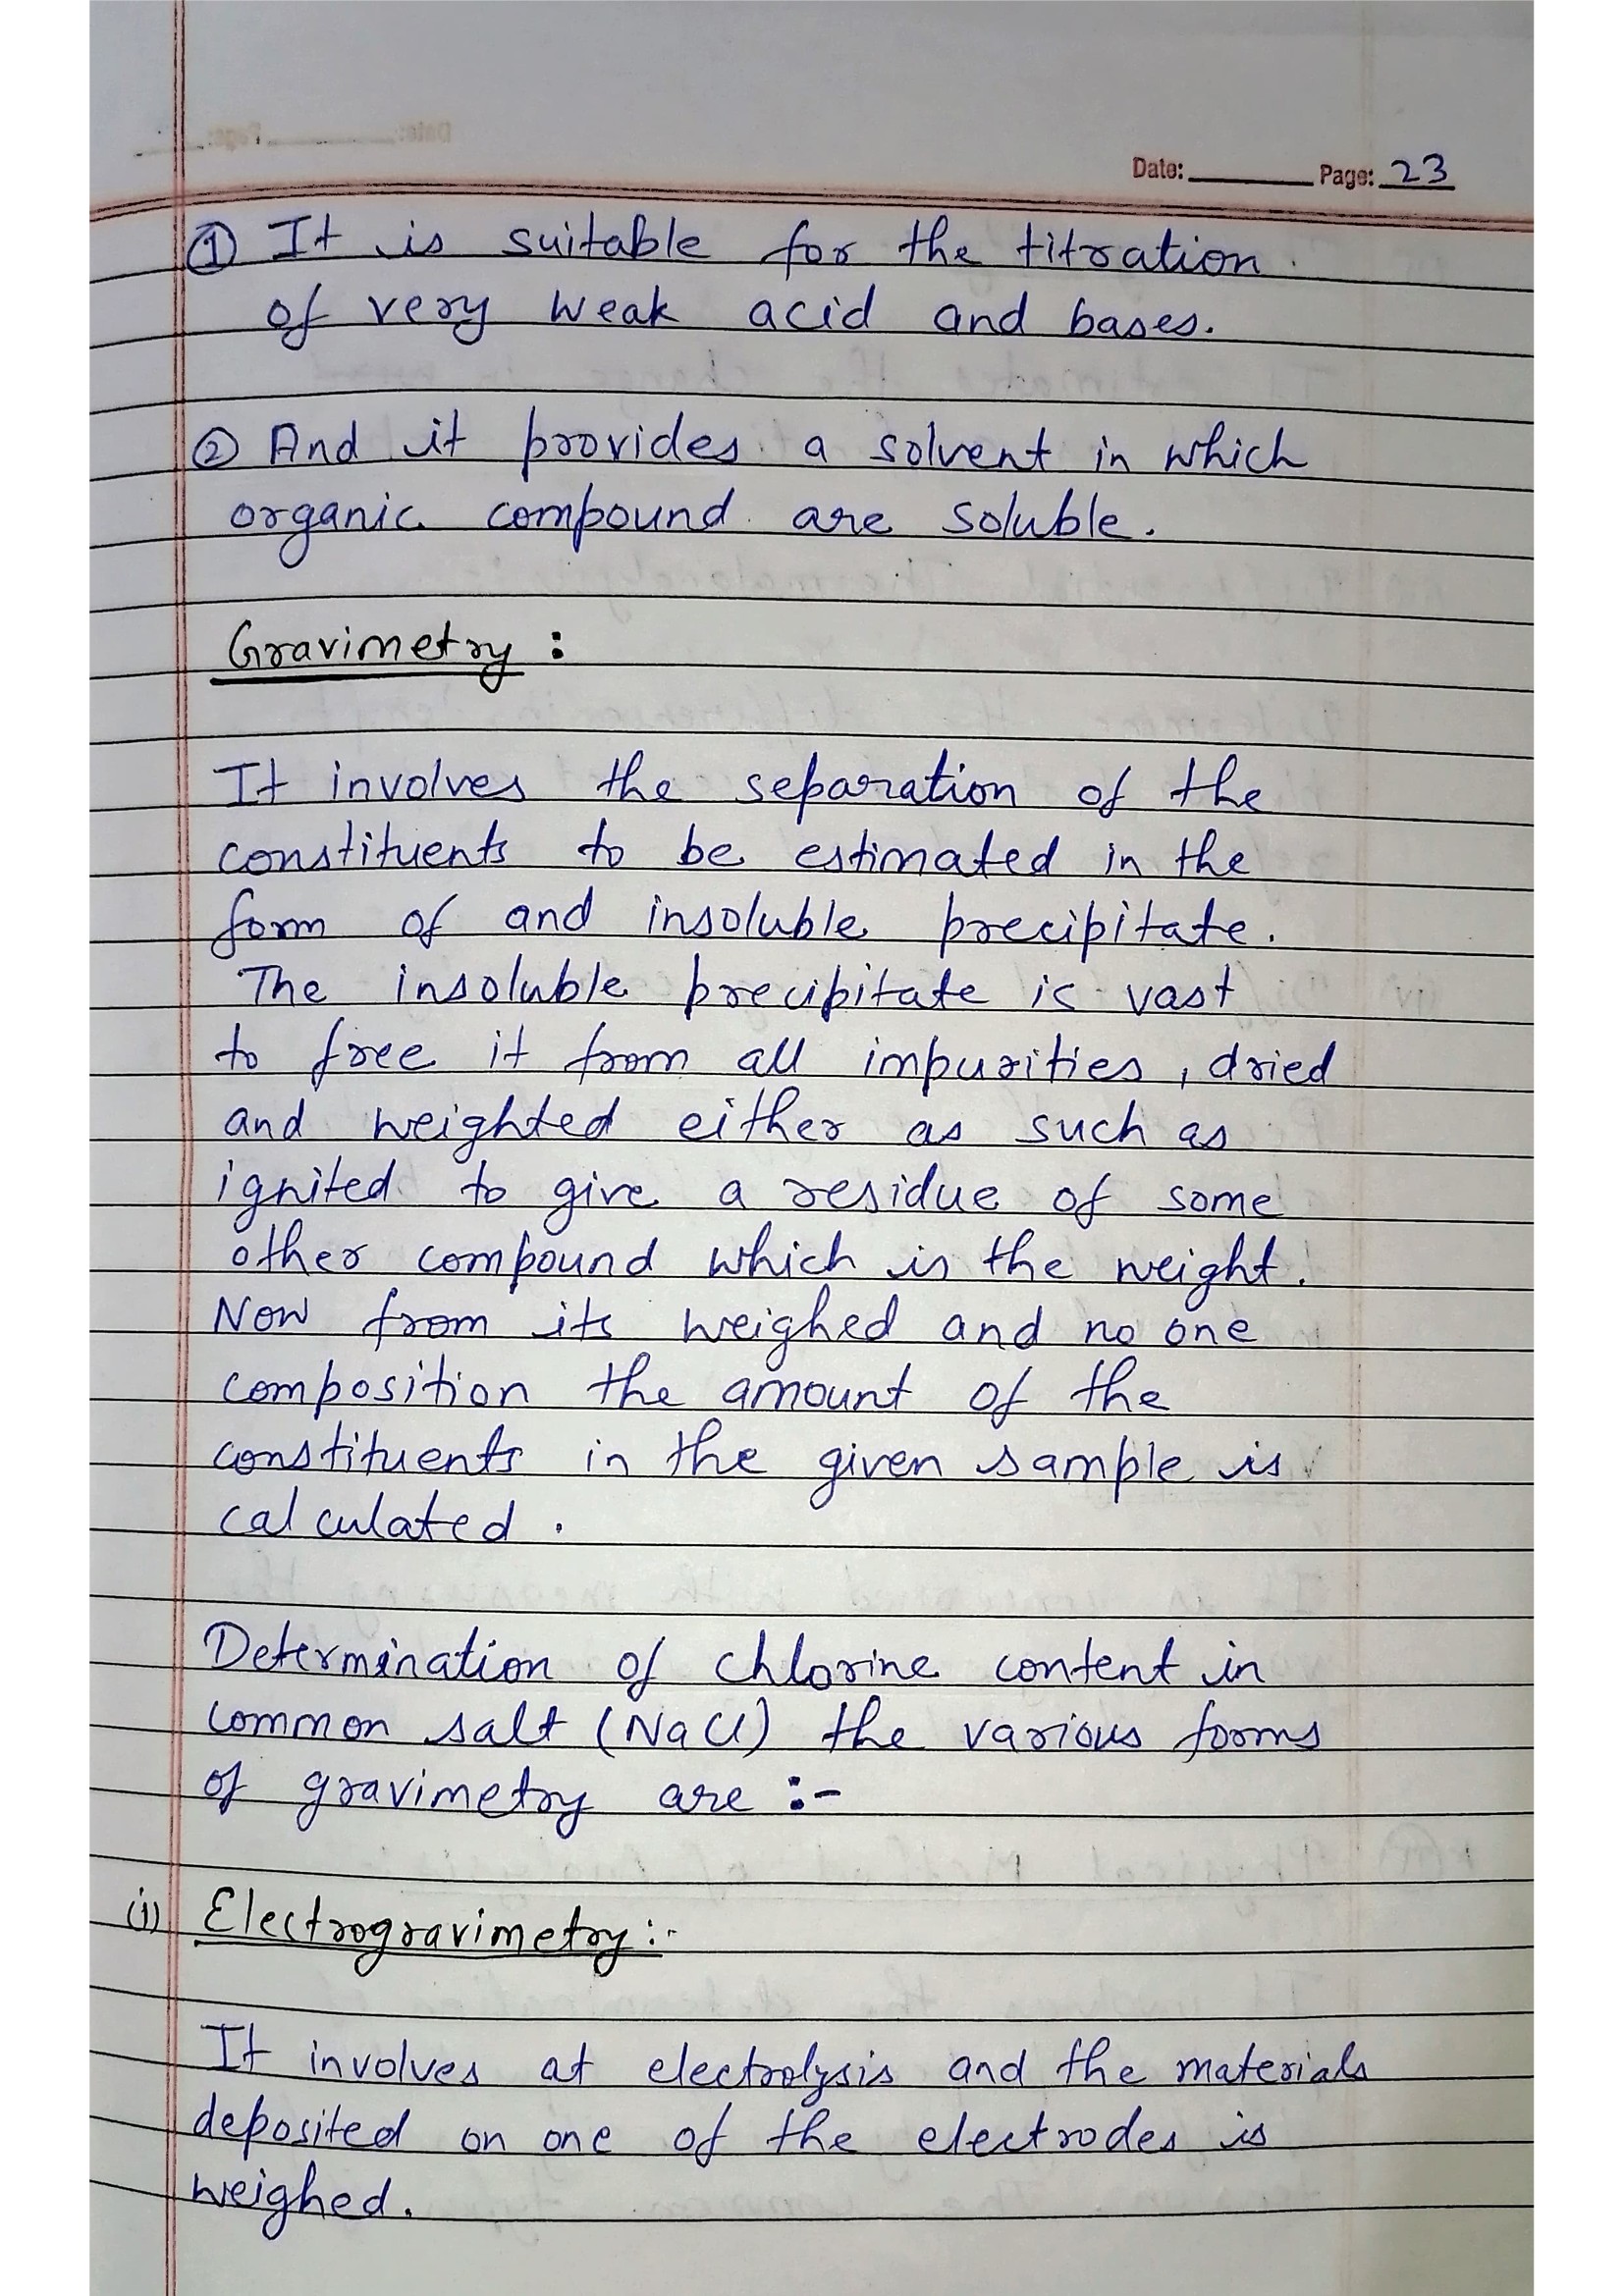 Date: Page: 23
① It is suitable for the titration
of very weak acid and bases.
② And it provides a solvent in which
organic compound are soluble.
Gravimetry :
It involves the separation of the
constituents to be estimated in the
form of and insoluble precipitate.
The insoluble precipitate is vast
to free it from all impurities, dried
and weighted either as such as
ignited to give a residue of some
other compound which is the weight.
Now from its weighed and no one
composition the amount of the
constituents in the given sample is
calculated.
Determination of chlorine content in
common salt (NaCl) the various forms
of gravimetry are :-
(i) Electrogravimetry :-
It involves at electrolysis and the materials
deposited on one of the electrodes is
weighed.